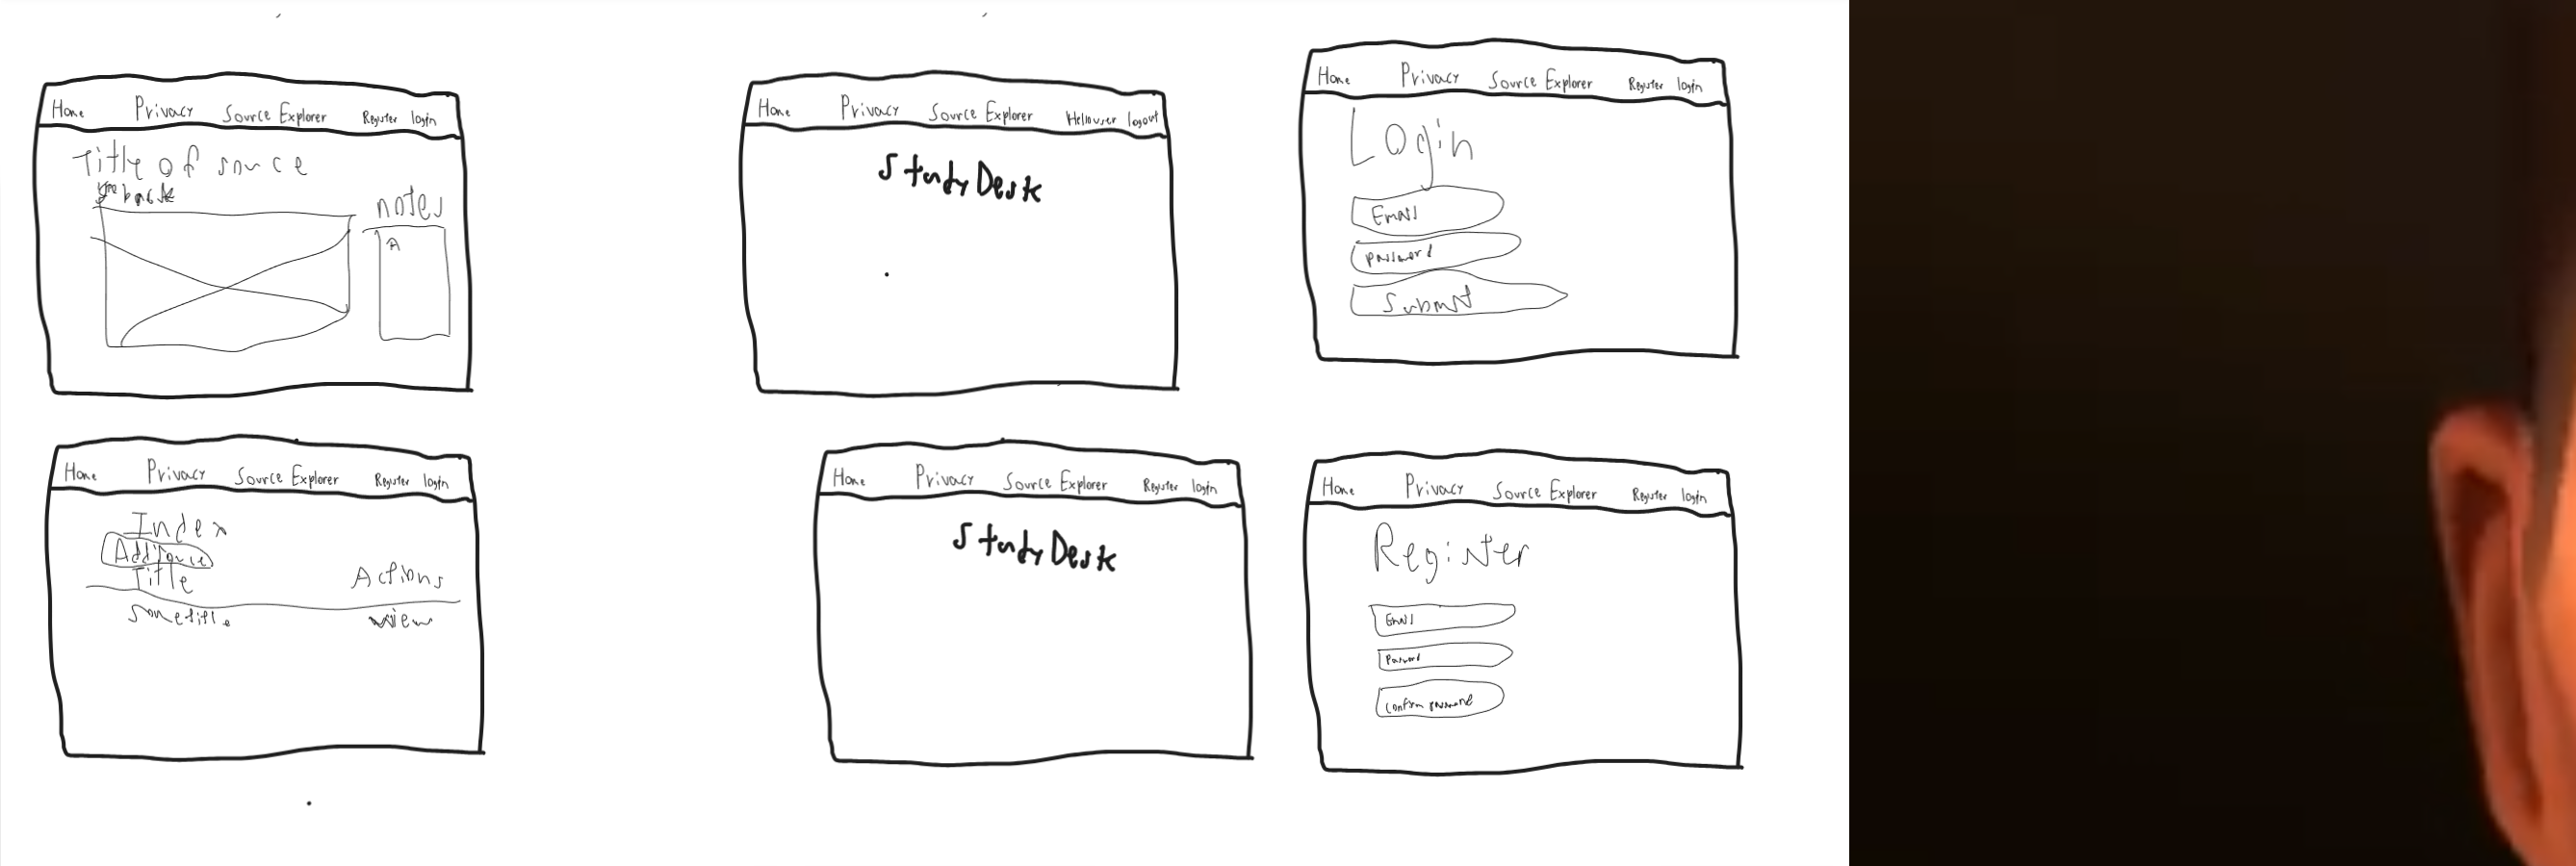 Home Privacy Source Explorer Register login
Title of source
notes
A
Home Privacy Source Explorer Hello user logout
StudyDesk
Home Privacy Source Explorer Register login
Login
Email
password
Submit
Home Privacy Source Explorer Register login
Index
Add Source
Title Actions
Some title view
Home Privacy Source Explorer Register login
StudyDesk
Home Privacy Source Explorer Register login
Register
Email
Password
Confirm password